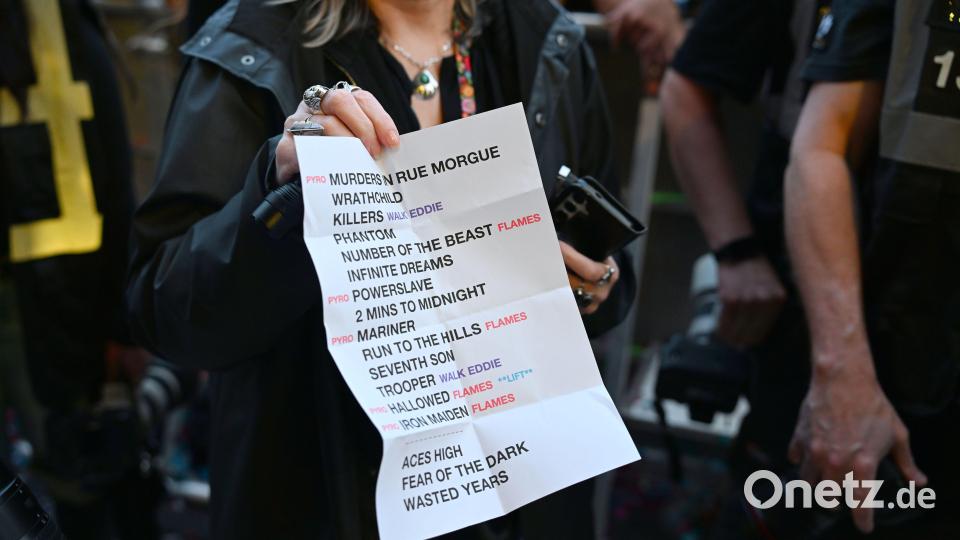 PYRO MURDERS N RUE MORGUE
WRATHCHILD
KILLERS WALK EDDIE
PHANTOM
NUMBER OF THE BEAST FLAMES
INFINITE DREAMS
PYRO POWERSLAVE
2 MINS TO MIDNIGHT
PYRO MARINER
RUN TO THE HILLS FLAMES
SEVENTH SON
TROOPER WALK EDDIE
PYRO HALLOWED FLAMES **LIFT**
PYRO IRON MAIDEN FLAMES
------------
ACES HIGH
FEAR OF THE DARK
WASTED YEARS
Onetz.de